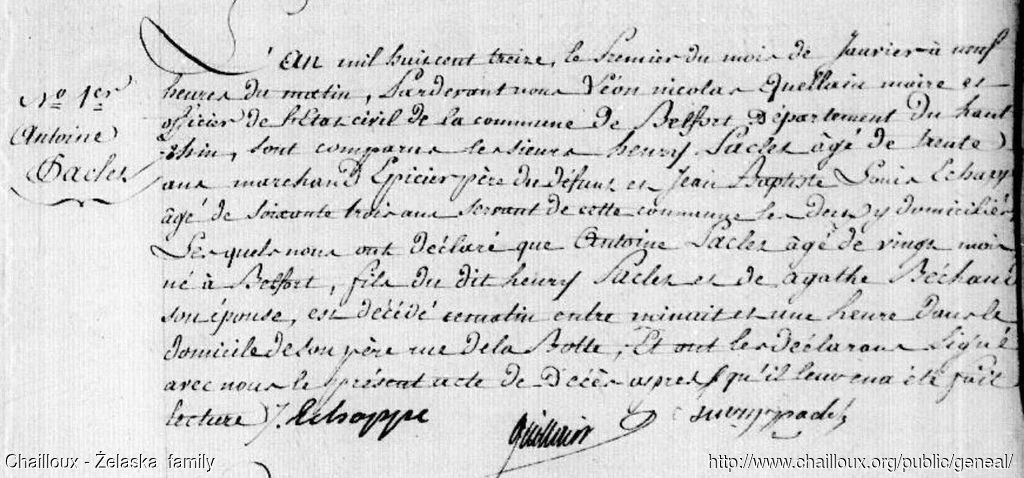 No 1er
Antoine
Pacles
L'An mil huit cent treize, le premier du mois de Janvier à neuf
heures du matin, Pardevant nous Léon nicolas Quellain maire et
officier de l'Etat civil de la commune de Belfort Département du haut
rhin, sont comparus les sieurs henry Pacles âgé de trente
ans marchand Epicier père du défunt et Jean Baptiste Louis Echapp
âgé de soixante trois ans servant de cette commune les deux y domiciliés
Lesquels nous ont déclaré que Antoine Pacles âgé de vingt mois
né à Belfort, fils du dit henry Pacles et de agathe Béchaud
son épouse, est décédé ce matin entre minuit et une heure dans le
domicile de son père rue de la Botte, Et ont les déclarans signé
avec nous le présent acte de Décès après qu'il leur en a été fait
lecture
Chailloux - Żelaska family
http://www.chailloux.org/public/geneal/